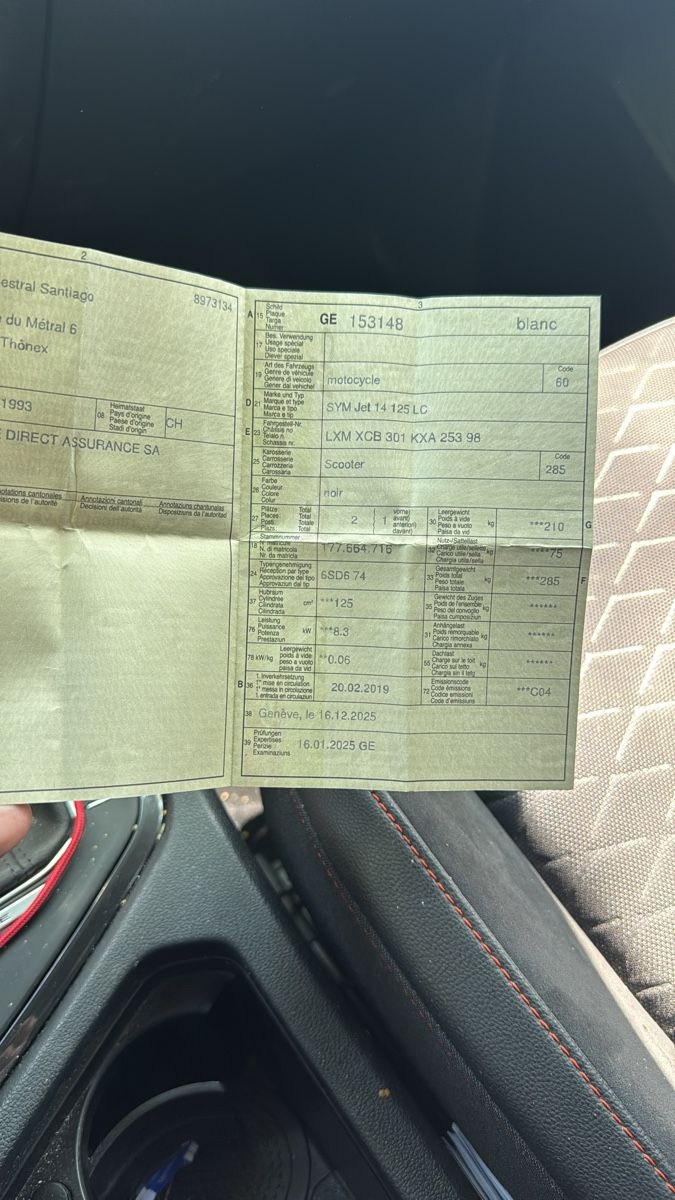 2
estral Santiago
8973134
du Métral 6
Thônex
1993
08 Heimatstaat
Pays d'origine
Paese d'origine
Stadi d'origin
CH
DIRECT ASSURANCE SA
Annotazioni cantonali
Decisioni dell'autorità
Annotaziuns chantunalas
Disposiziuns da l'autoritad
3
A 15 Schild
Plaque
Targa
Numer
GE 153148 blanc
17 Bes. Verwendung
Usage spécial
Uso speciale
Diever spezial
19 Art des Fahrzeugs
Genre de véhicule
Genere di veicolo
Gener dal vehichel
motocycle
Code
60
D 21 Marke und Typ
Marque et type
Marca e tipo
Marca e tip
SYM Jet 14 125 LC
E 23 Fahrgestell-Nr.
Châssis no
Telaio n.
Schassis nr.
LXM XCB 301 KXA 253 98
25 Karosserie
Carrosserie
Carrozzeria
Carossaria
Scooter
Code
285
26 Farbe
Couleur
Colore
Colur
noir
27 Plätze: Total
Places: Total
Posti: Totale
Plazs: Total
2 1
vorne)
avant)
anteriori)
davant)
30 Leergewicht
Poids à vide
Peso a vuoto
Paisa da vid
kg
***210
G
18 Stammnummer
N. matricule
N. di matricola
Nr. da matricla
177.664.716
32 Nutz-/Sattellast
Charge utile/sellette
Carico utile/sella
Chargia utila/sella
kg
****75
24 Typengenehmigung
Réception par type
Approvazione del tipo
Approvaziun dal tip
6SD6 74
33 Gesamtgewicht
Poids total
Peso totale
Paisa totala
kg
***285
F
37 Hubraum
Cylindrée
Cilindrata
Cilindrada
cm³
***125
35 Gewicht des Zuges
Poids de l'ensemble
Peso del convoglio
Paisa cumposiziun
kg
******
76 Leistung
Puissance
Potenza
Prestaziun
kW
***8.3
31 Anhängelast
Poids remorquable
Carico rimorchiato
Chargia annexa
kg
******
78 kW/kg
Leergewicht
poids à vide
peso a vuoto
paisa da vid
**0.06
55 Dachlast
Charge sur le toit
Carico sul tetto
Chargia sin il tetg
kg
******
B 36 1. Inverkehrsetzung
1re mise en circulation
1a messa in circolazione
1. entrada en circulaziun
20.02.2019
72 Emissionscode
Code émissions
Codice emissioni
Code d'emissiuns
***C04
38 Genève, le 16.12.2025
39 Prüfungen
Expertises
Perizie
Examinaziuns
16.01.2025 GE